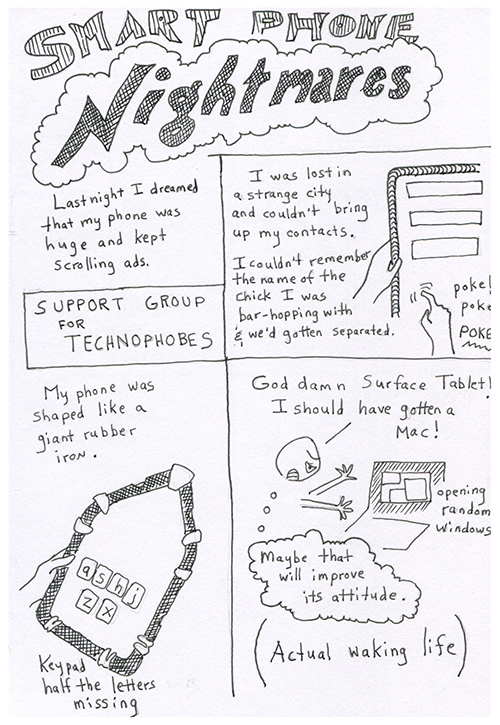 SMART PHONE
Nightmares
Last night I dreamed
that my phone was
huge and kept
scrolling ads.
SUPPORT GROUP
FOR
TECHNOPHOBES
I was lost in
a strange city
and couldn't bring
up my contacts.
I couldn't remember
the name of the
chick I was
bar-hopping with
& we'd gotten separated.
poke!
poke
POKE
My phone was
shaped like a
giant rubber
iron.
a s h j
z x
Keypad
half the letters
missing
God damn Surface Tablet!
I should have gotten a
Mac!
opening
random
windows
Maybe that
will improve
its attitude.
(Actual waking life)